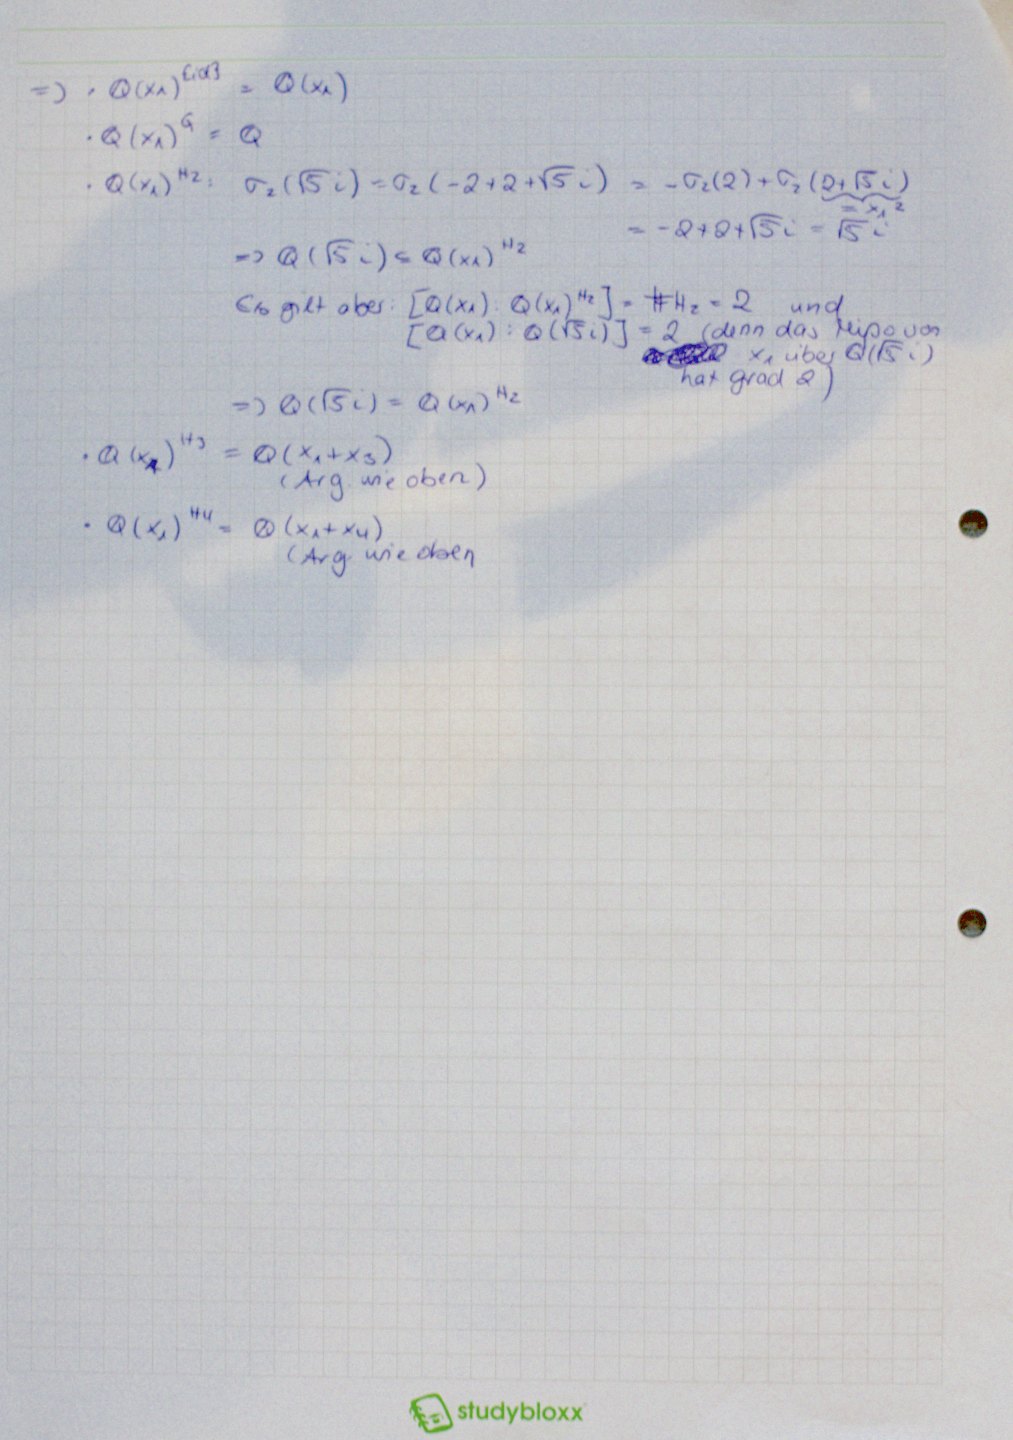 => · Q(x₁)^{id} = Q(x₁)
· Q(x₁)^G = Q
· Q(x₁)^H₂: σ₂(√5 i) = σ₂(-2+2+√5 i) = -σ₂(2) + σ₂(2+√5 i)
= x₁²
= -2+2+√5 i = √5 i
=> Q(√5 i) ⊆ Q(x₁)^H₂
Es gilt aber: [Q(x₁) : Q(x₁)^H₂] = #H₂ = 2 und
[Q(x₁) : Q(√5 i)] = 2 (denn das Mipo von
x₁ über Q(√5 i)
hat grad 2)
=> Q(√5 i) = Q(x₁)^H₂
· Q(x₁)^H₃ = Q(x₁+x₃)
(Arg. wie oben)
· Q(x₁)^H₄ = Q(x₁+x₄)
(Arg wie oben
studybloxx